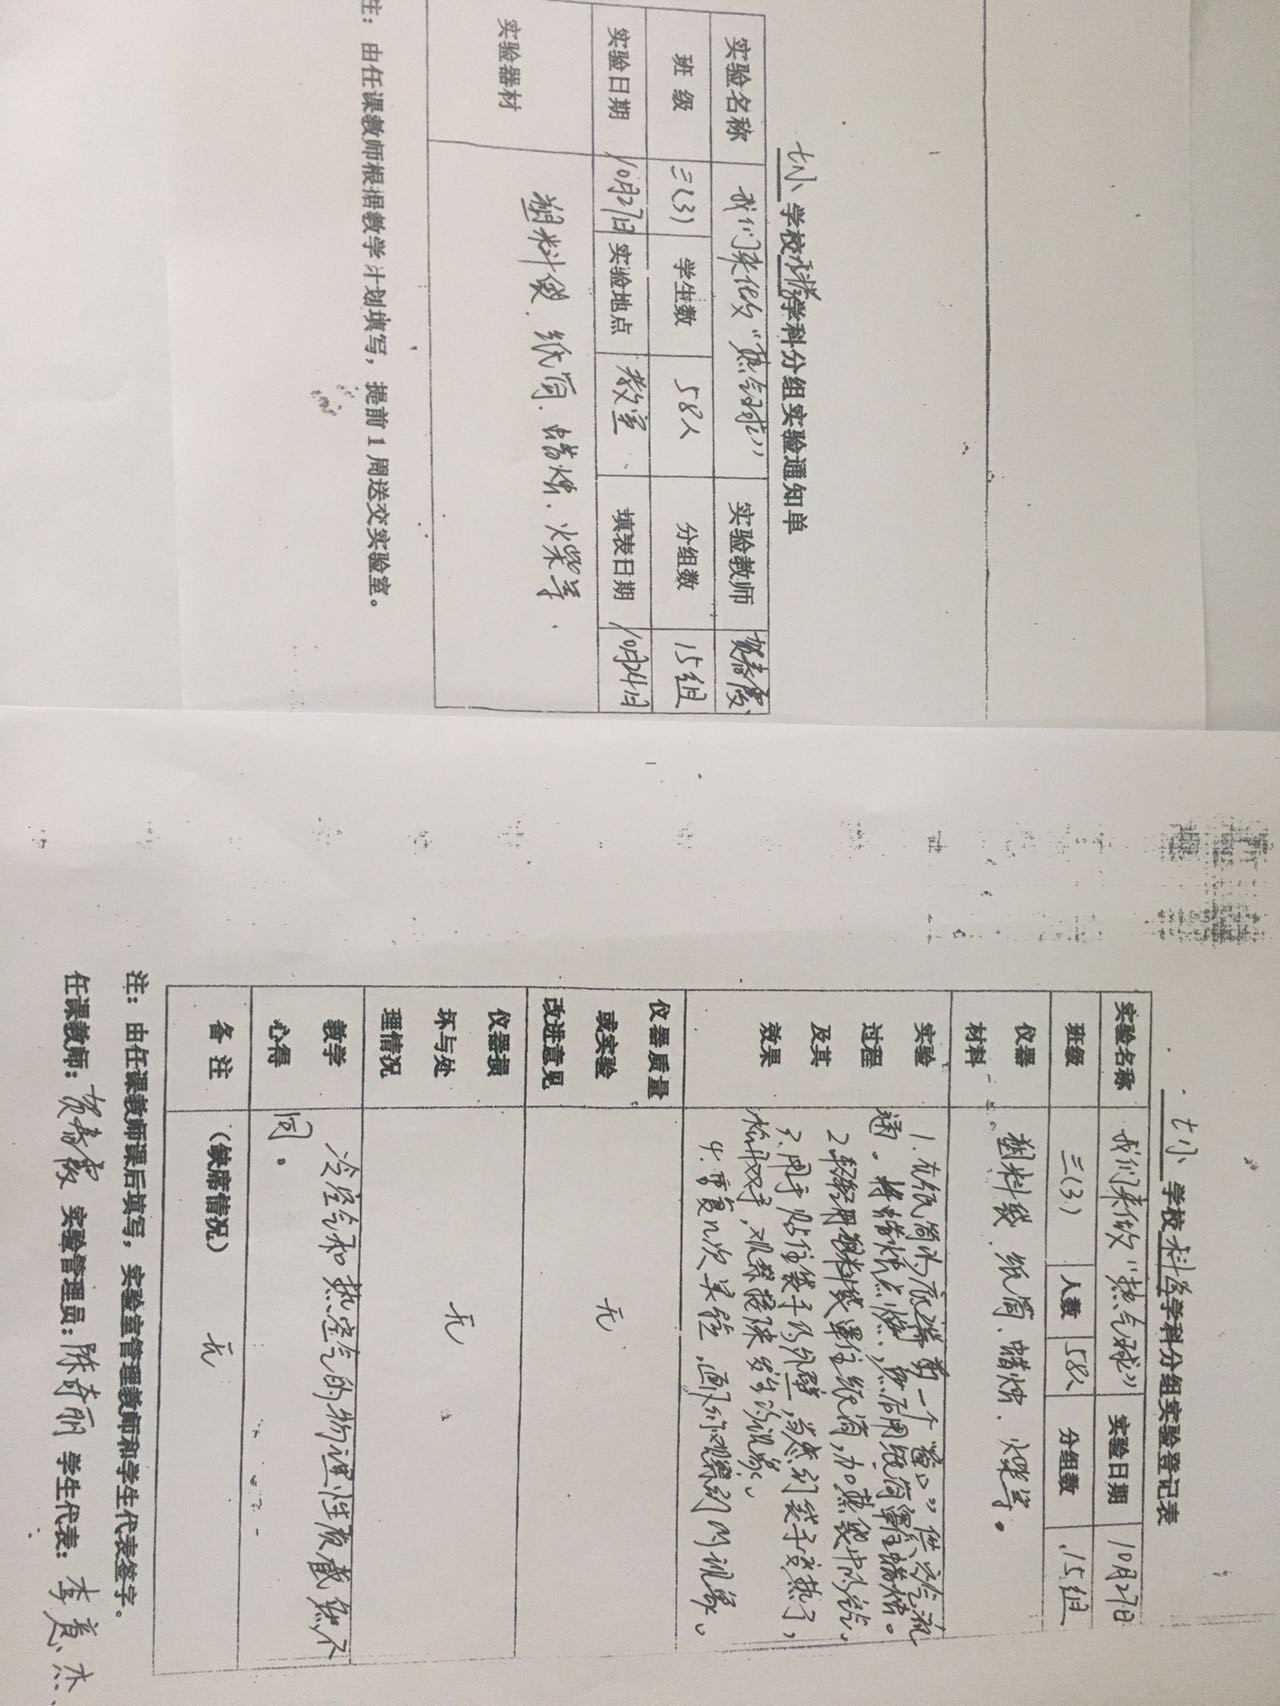 七小学校科学学科分组实验通知单
实验名称 我们来做“热气球” 实验教师 贺春霞
班级 三(3) 学生数 58人 分组数 15组
实验日期 10月27日 实验地点 教室 填表日期 10月24日
实验器材 塑料袋、纸筒、蜡烛、火柴等.
注：由任课教师根据教学计划填写，提前1周送交实验室。
七小学校科学学科分组实验登记表
实验名称 我们来做“热气球” 实验日期 10月27日
班级 三(3) 人数 58人 分组数 15组
仪器
材料
塑料袋、纸筒、蜡烛、火柴等。
实验
过程
及其
效果
1.在纸筒的底端剪一个“窗口”供空气流
通。将蜡烛点燃，然后用纸筒罩住蜡烛。
2.轻轻用塑料袋罩住纸筒，加热袋中的空气。
3.用手贴住袋子的外壁，当感到袋子变热了，
松开双手，观察发生的现象。
4.重复几次实验，画下你观察到的现象。
仪器质量
或实验
改进意见
无
仪器损
坏与处
理情况
无
教学
心得
冷空气和热空气的物理性质截然不
同。
备注 (缺席情况) 无
注：由任课教师课后填写，实验室管理教师和学生代表签字。
任课教师：贺春霞 实验管理员：陈奇丽 学生代表：李意杰